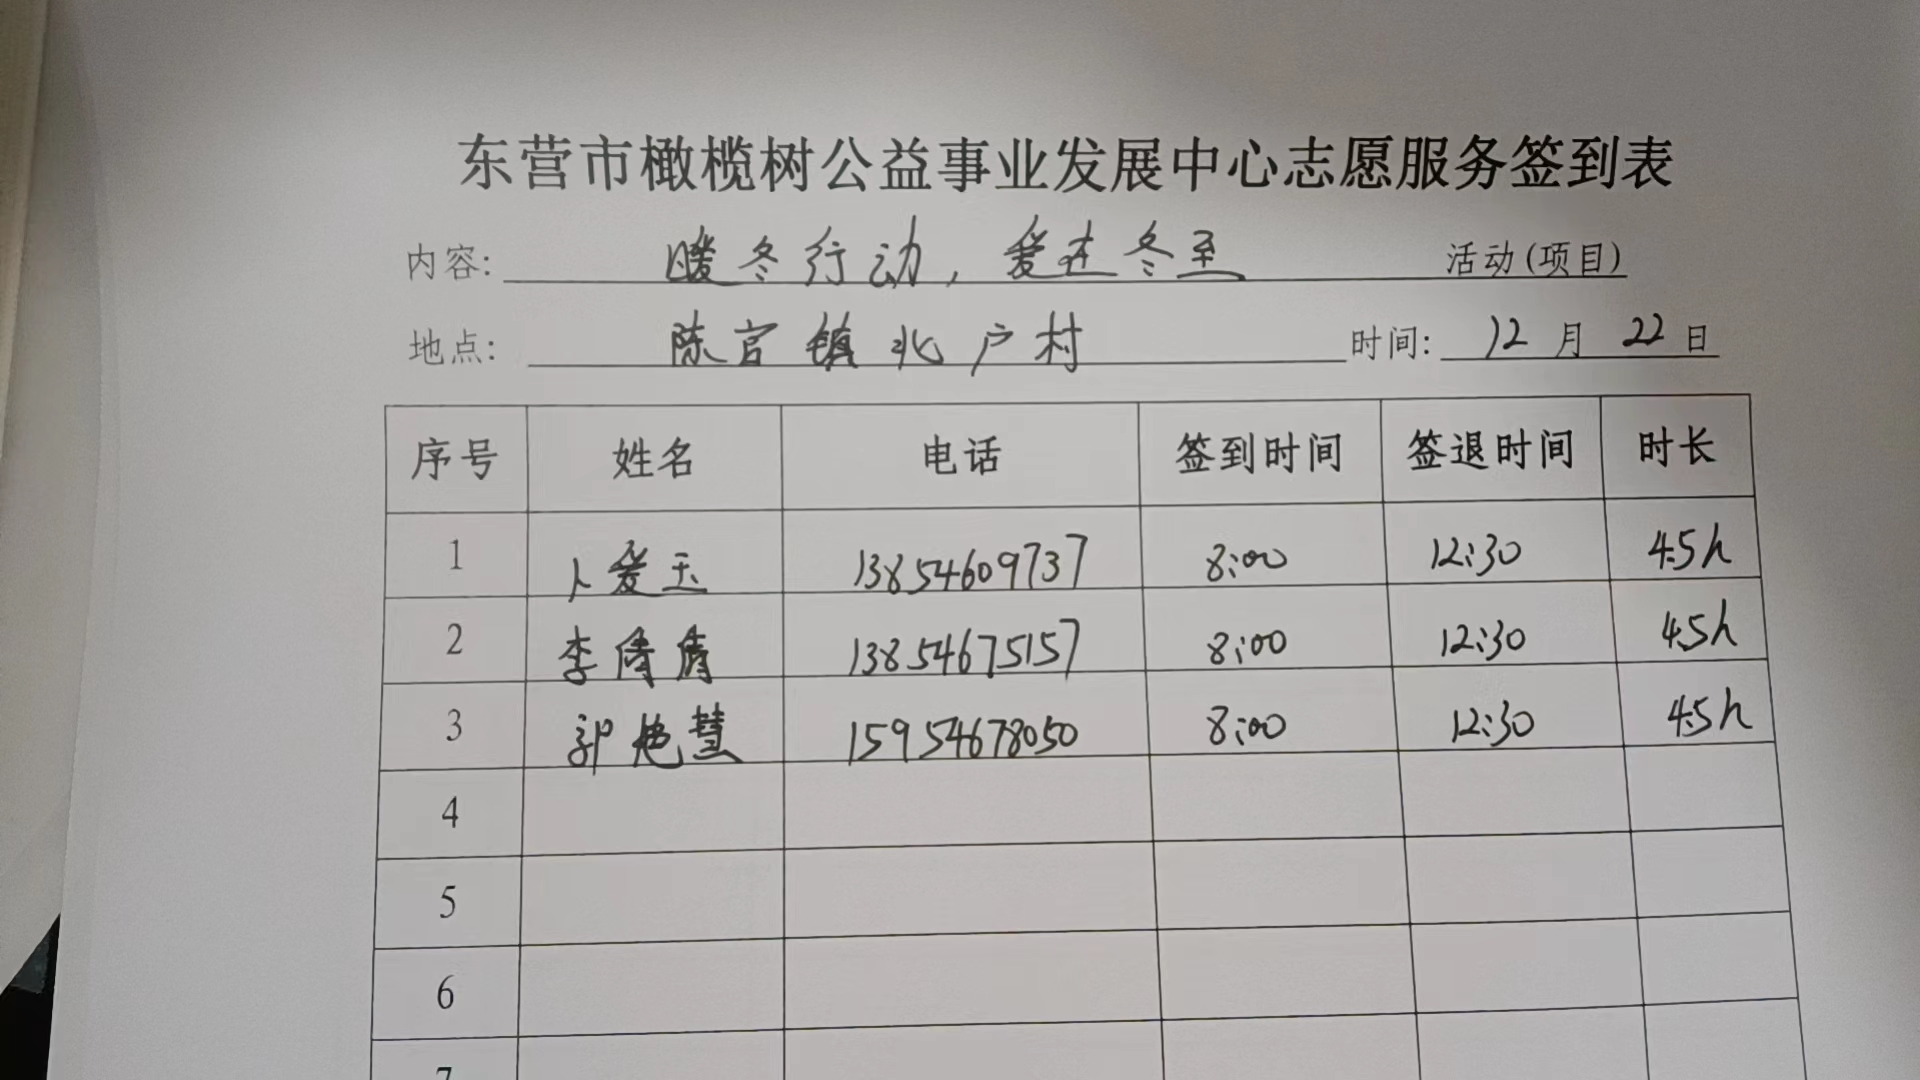 东营市橄榄树公益事业发展中心志愿服务签到表
内容: 暖冬行动，爱在冬至 活动(项目)
地点: 陈官镇北户村 时间: 12月22日
序号 姓名 电话 签到时间 签退时间 时长
1 卜爱玉 13854609737 8:00 12:30 4.5h
2 李倩倩 13854675157 8:00 12:30 4.5h
3 郭艳慧 15954678050 8:00 12:30 4.5h
4
5
6
7